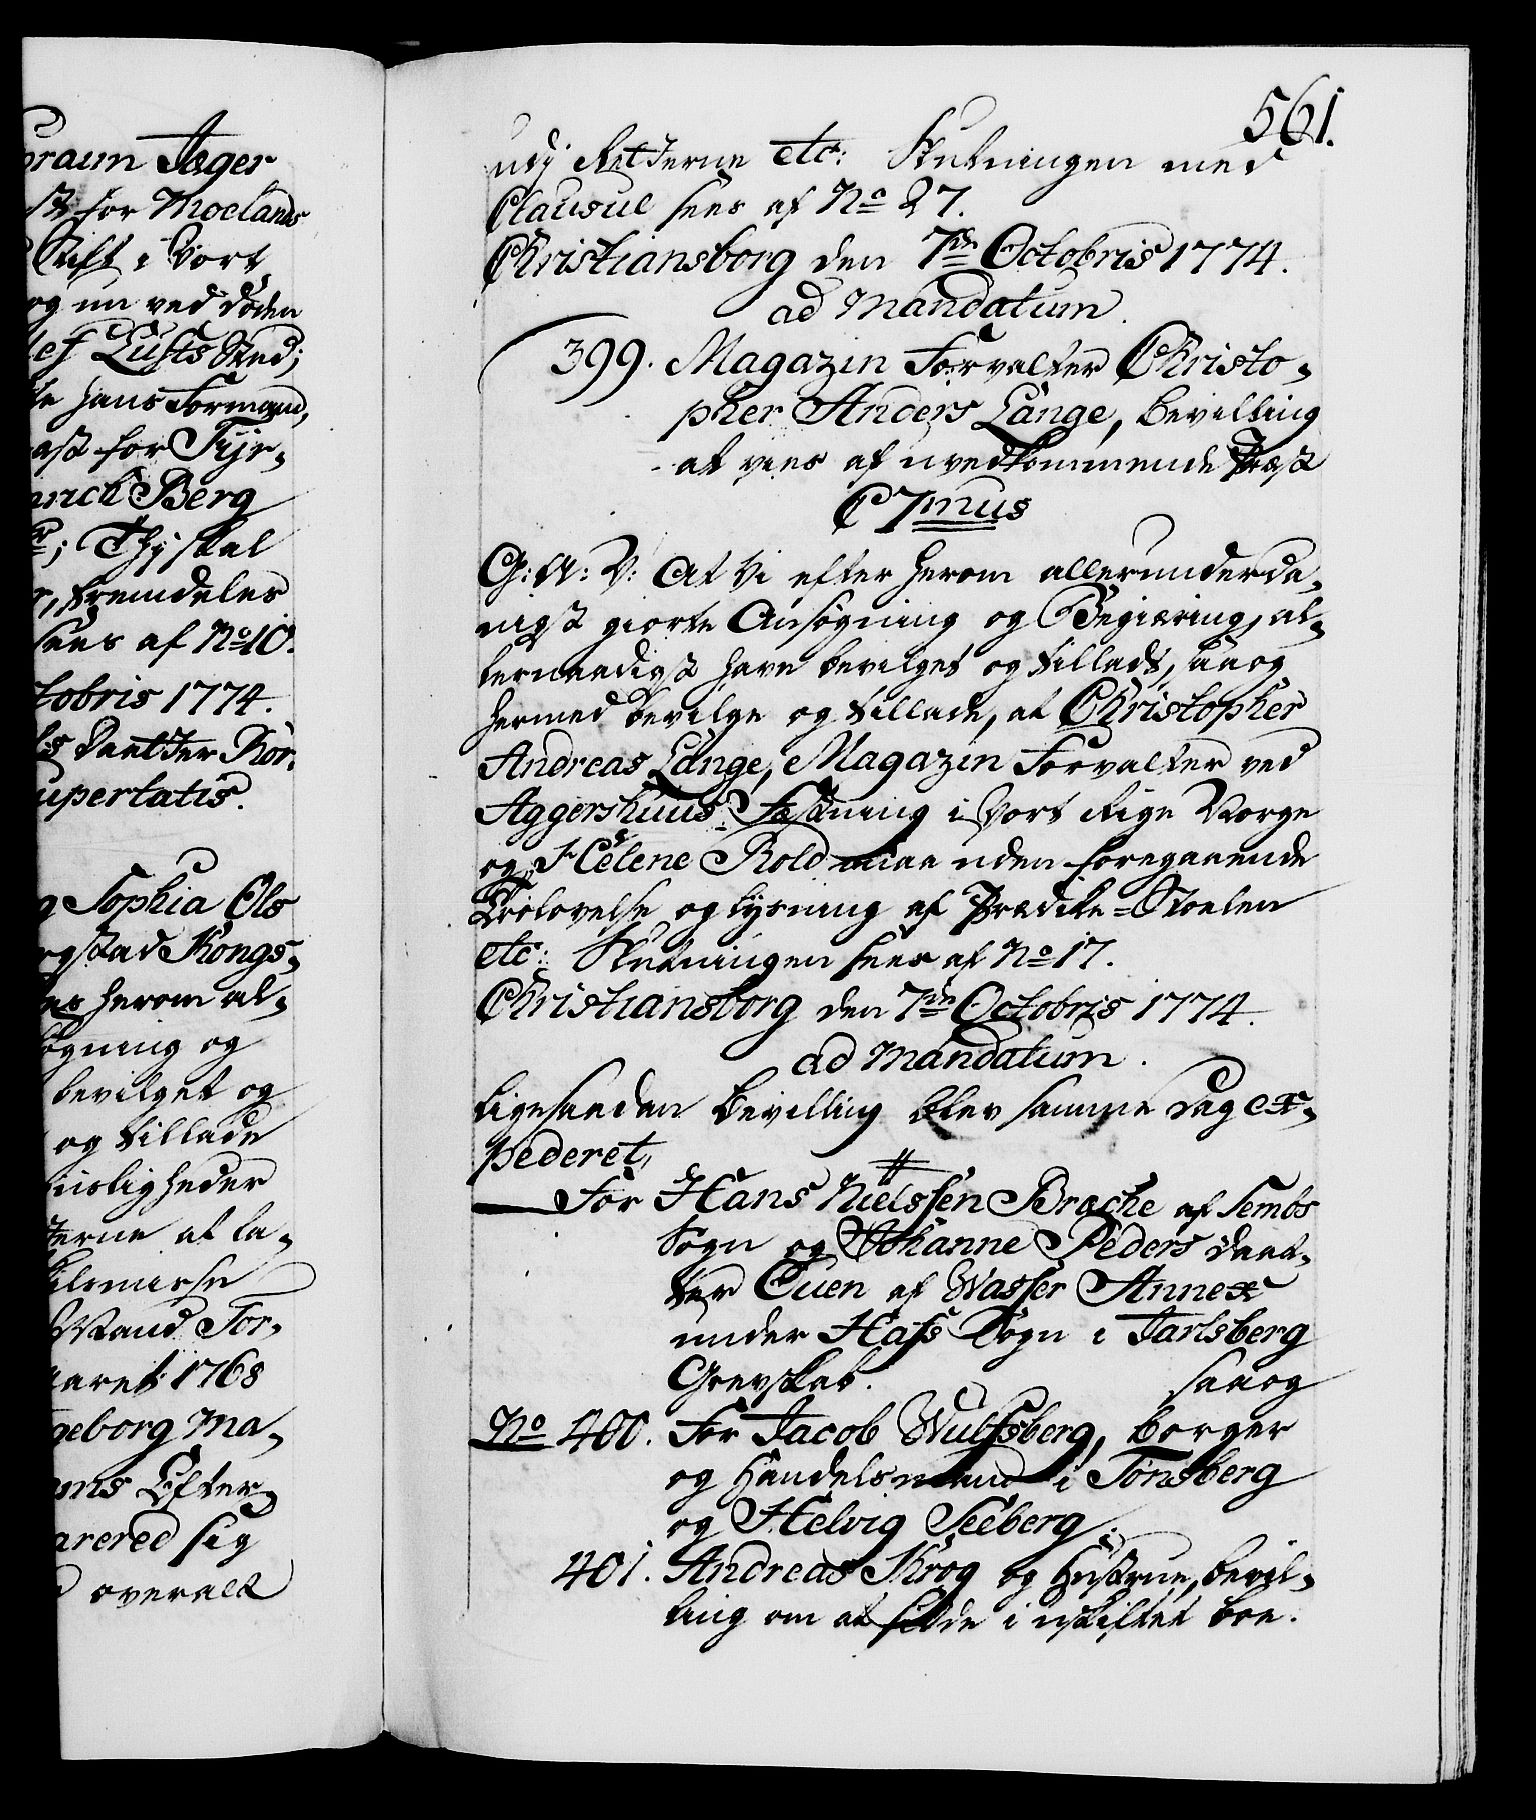 561.
udj Retterne etc: Slutningen med
Clausul sees af No 27.
Christiansborg den 7de Octobris 1774.
ad Mandatum.
399. Magazin Forvalter Christo-
pher Anders Lange, bevilling
at vies af uvedkommende Præst
C 7mus
G: A: V: At Vi efter herom allerunderda-
nigst giorte Ansøgning og Begiæring, al-
lernaadigst have bevilget og tilladt, saa og
hermed bevilge og tillade, at Christopher
Andreas Lange, Magazin Forvalter ved
Aggershuus Fæstning i Vort Rige Norge
og Helene Rold maae uden foregaaende
Trolovelse og lysning af Prædike-Stoelen
etc: Slutningen sees af No 17.
Christiansborg den 7de Octobris 1774.
ad Mandatum.
ligesaadan bevilling blev samme Dag ex-
pederet,
For Hans Nielssen Brache af Sembs
Sogn og Johanne Peders daat-
ter Euen af Wasser Annex
under Hafs Sogn i Jarlsberg
Grevskab. saa og
No 400. For Jacob Wulfsberg, borger
og Handelsmand i Tønsberg
og Helvig Seeberg.
401. Andreas Krog og Hustrue, bevil-
ling om at sidde i uskiftet boe.
braun Jæger
for Moelands
Stift i Vort
og nu ved Døden
Lufts Sted;
hans Formand,
for Tyr-
Berg
Thj skal
fremdeles
sees af No 10.
tobris 1774.
daatter Kor.
upertatis.
Sophia Ols
Kongs-
herom al-
øgning og
bevilget og
og tillade
ligheder
terne at la-
Mand For-
aaret 1768
geborg Ma-
Efter-
arered sig
overalt